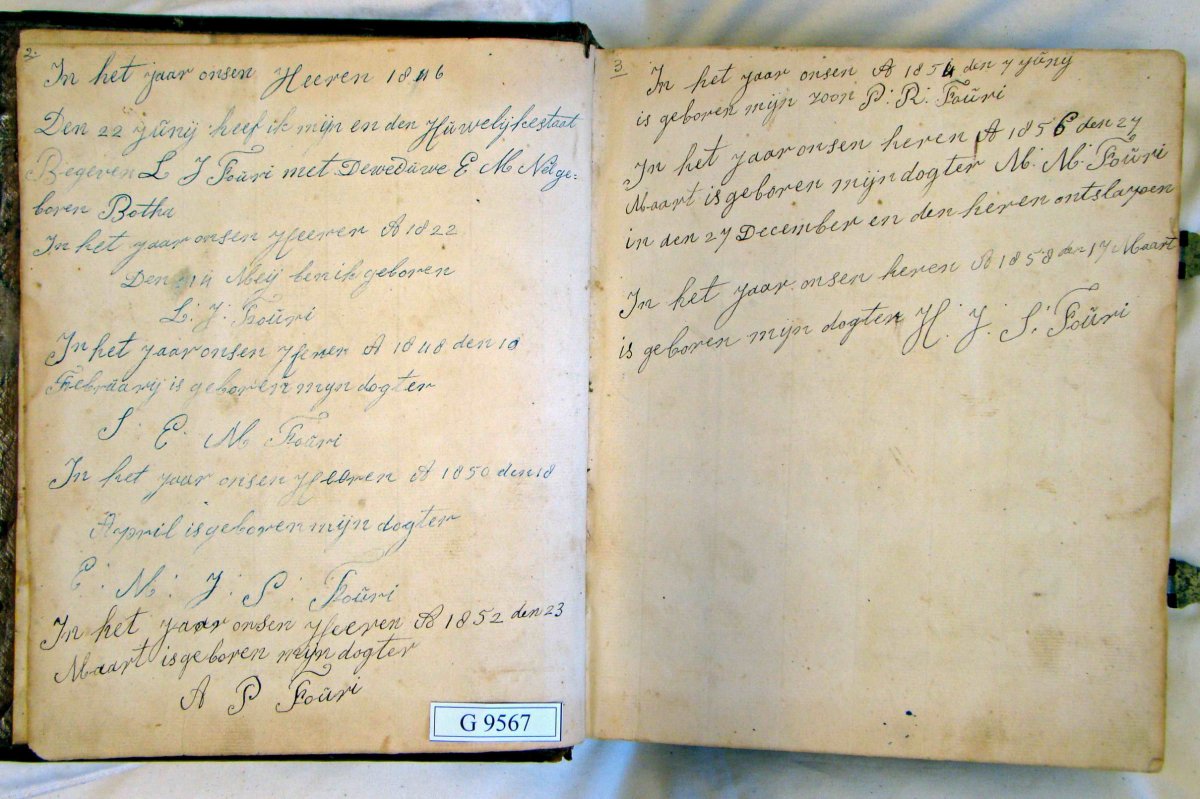 2.
In het jaar onsen Heeren 1846
Den 22 Junij heef ik mijn en den Huwelijkestaat
Begeven L J Fouri met Deweduwe E M Nel ge=
boren Botha
In het jaar onsen Heeren A 1822
Den 14 Meij ben ik geboren
L. J. Fouri
In het jaar onsen Heren A 1848 den 18
Februarij is geboren mijn dogter
S. E. M. Fouri
In het jaar onsen Heeren A 1850 den 18
April is geboren mijn dogter
E. M. J. S. Fouri
In het jaar onsen Heeren A 1852 den 23
Maart is geboren mijn dogter
A P Fouri
G 9567
3
In het jaar onsen A 1854 den 7 junij
is geboren mijn zoon P. R. Fouri
In het jaar onsen heren A 1856 den 27
Maart is geboren mijn dogter M. M. Fouri
in den 27 December en den heren ontslapen
In het jaar onsen heren A 1858 den 17 Maart
is geboren mijn dogter H. J. S. Fouri